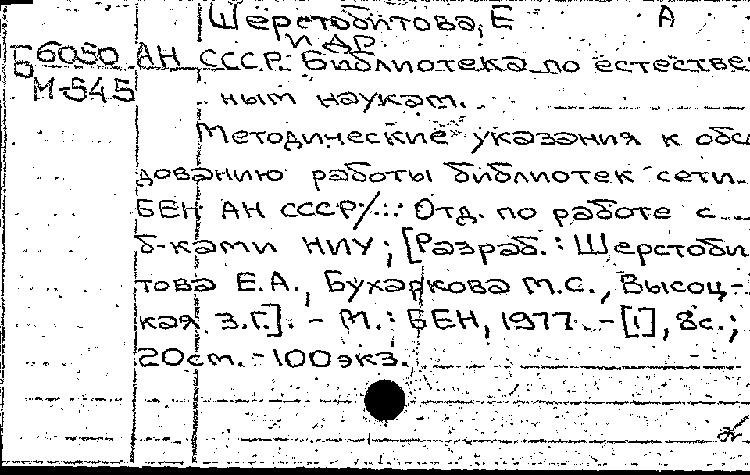 Шерстобитова, Е А
и др
Б6050 АН СССР. Библиотека по естестве
М-545 ным наукам.
Методические указания к обс
дованию работы библиотек сети
БЕН АН СССР/...: Отд. по работе с
б-ками НИУ; [Разраб.: Шерстоби
това Е.А., Бухаркова М.С., Высоц-
кая З.Г.]. - М.: БЕН, 1977. - [1], 8с.;
20см. - 100экз.